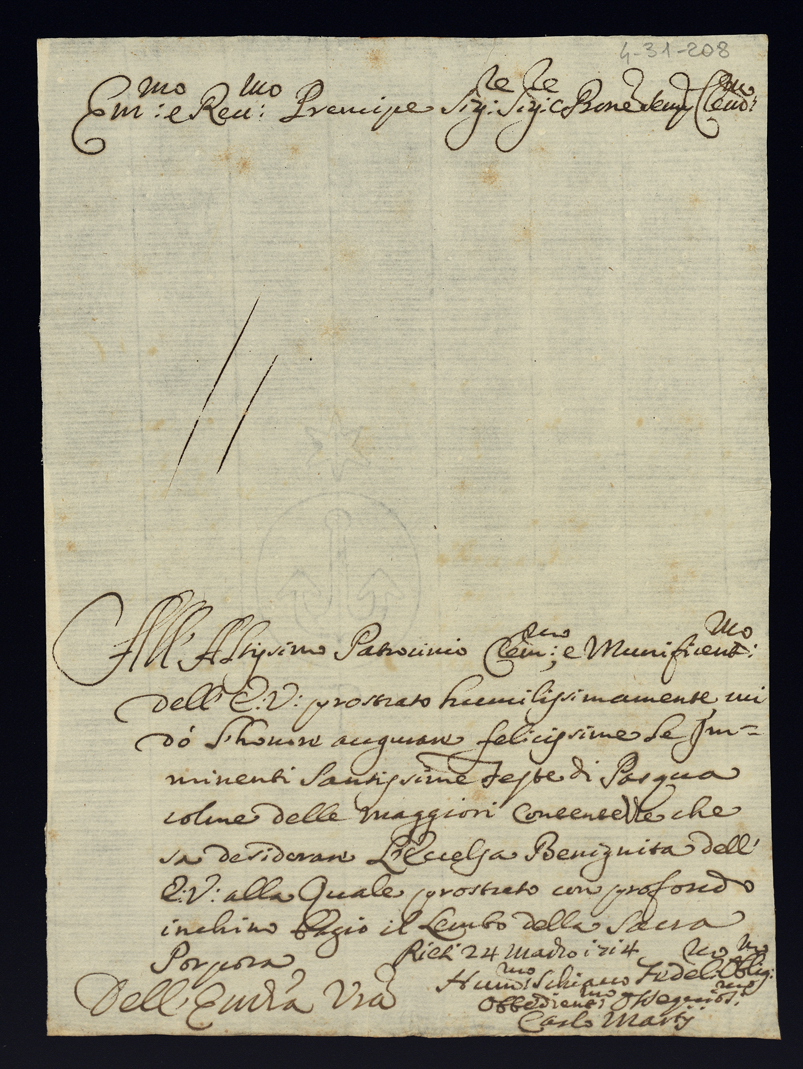 4-31-208
Em:mo e Reu:mo Prencipe Sig:re Sig:re e Prone Semp Clem:mo
All' Altissimo Patrocinio Clem:mo e Munificent:mo
dell' E: V: prostrato humilissimamente mi
dó l'honor augurare felicissime le Im=
minenti Santissime feste di Pasqua
colme delle maggiori contentezze che
sa desiderare L'Eccelsa Benignita dell'
E: V: alla Quale prostrato con profondo
inchino bagio il Lembo della Sacra
Porpora
Rieti 24 Marzo 1714
Dell' Emza Vra
Hum:mo Schiauo Fidel:mo Oblig:mo
Obbedient:mo Osseguios:mo
Carlo Martij